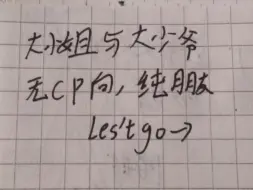 大小姐与大少爷
无CP向，纯朋友
Les't go→